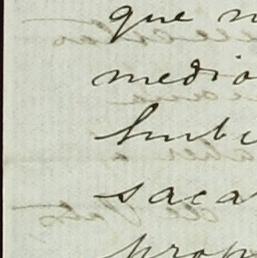 que n
medio
hubi
saca
prop